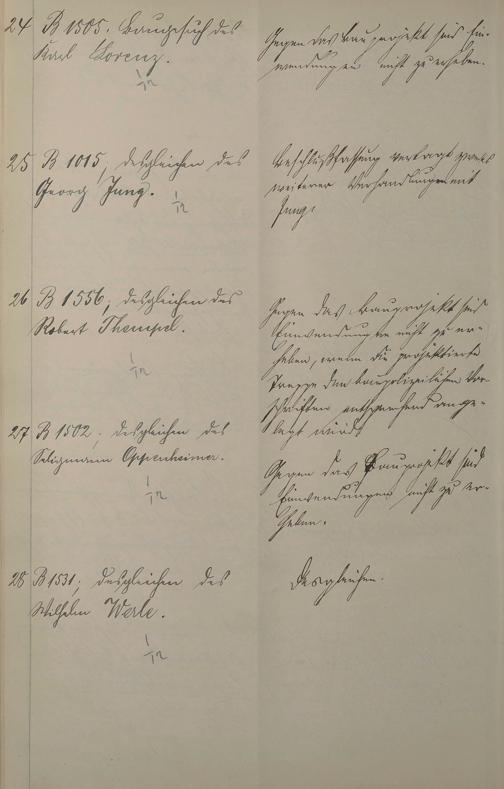 24 B 1505. Baugesuch des
Karl Lorenz.
Gegen das Bauprojekt sind Ein-
wendungen nicht zu erheben.
25 B 1015, desgleichen des
Georg Jung.
Beschlußfassung vertagt zwecks
weiterer Verhandlungen mit
Jung.
26 B 1556, desgleichen des
Robert Thempel.
Gegen das Bauprojekt sind
Einwendungen nicht zu er-
heben, wenn die projektierte
Treppe den baupolizeilichen Vor-
schriften entsprechend ange-
legt wird.
27 B 1502, desgleichen des
Seligmann Oppenheimer.
Gegen das Bauprojekt sind
Einwendungen nicht zu er-
heben.
28 B 1531, desgleichen des
Wilhelm Werle.
Desgleichen.